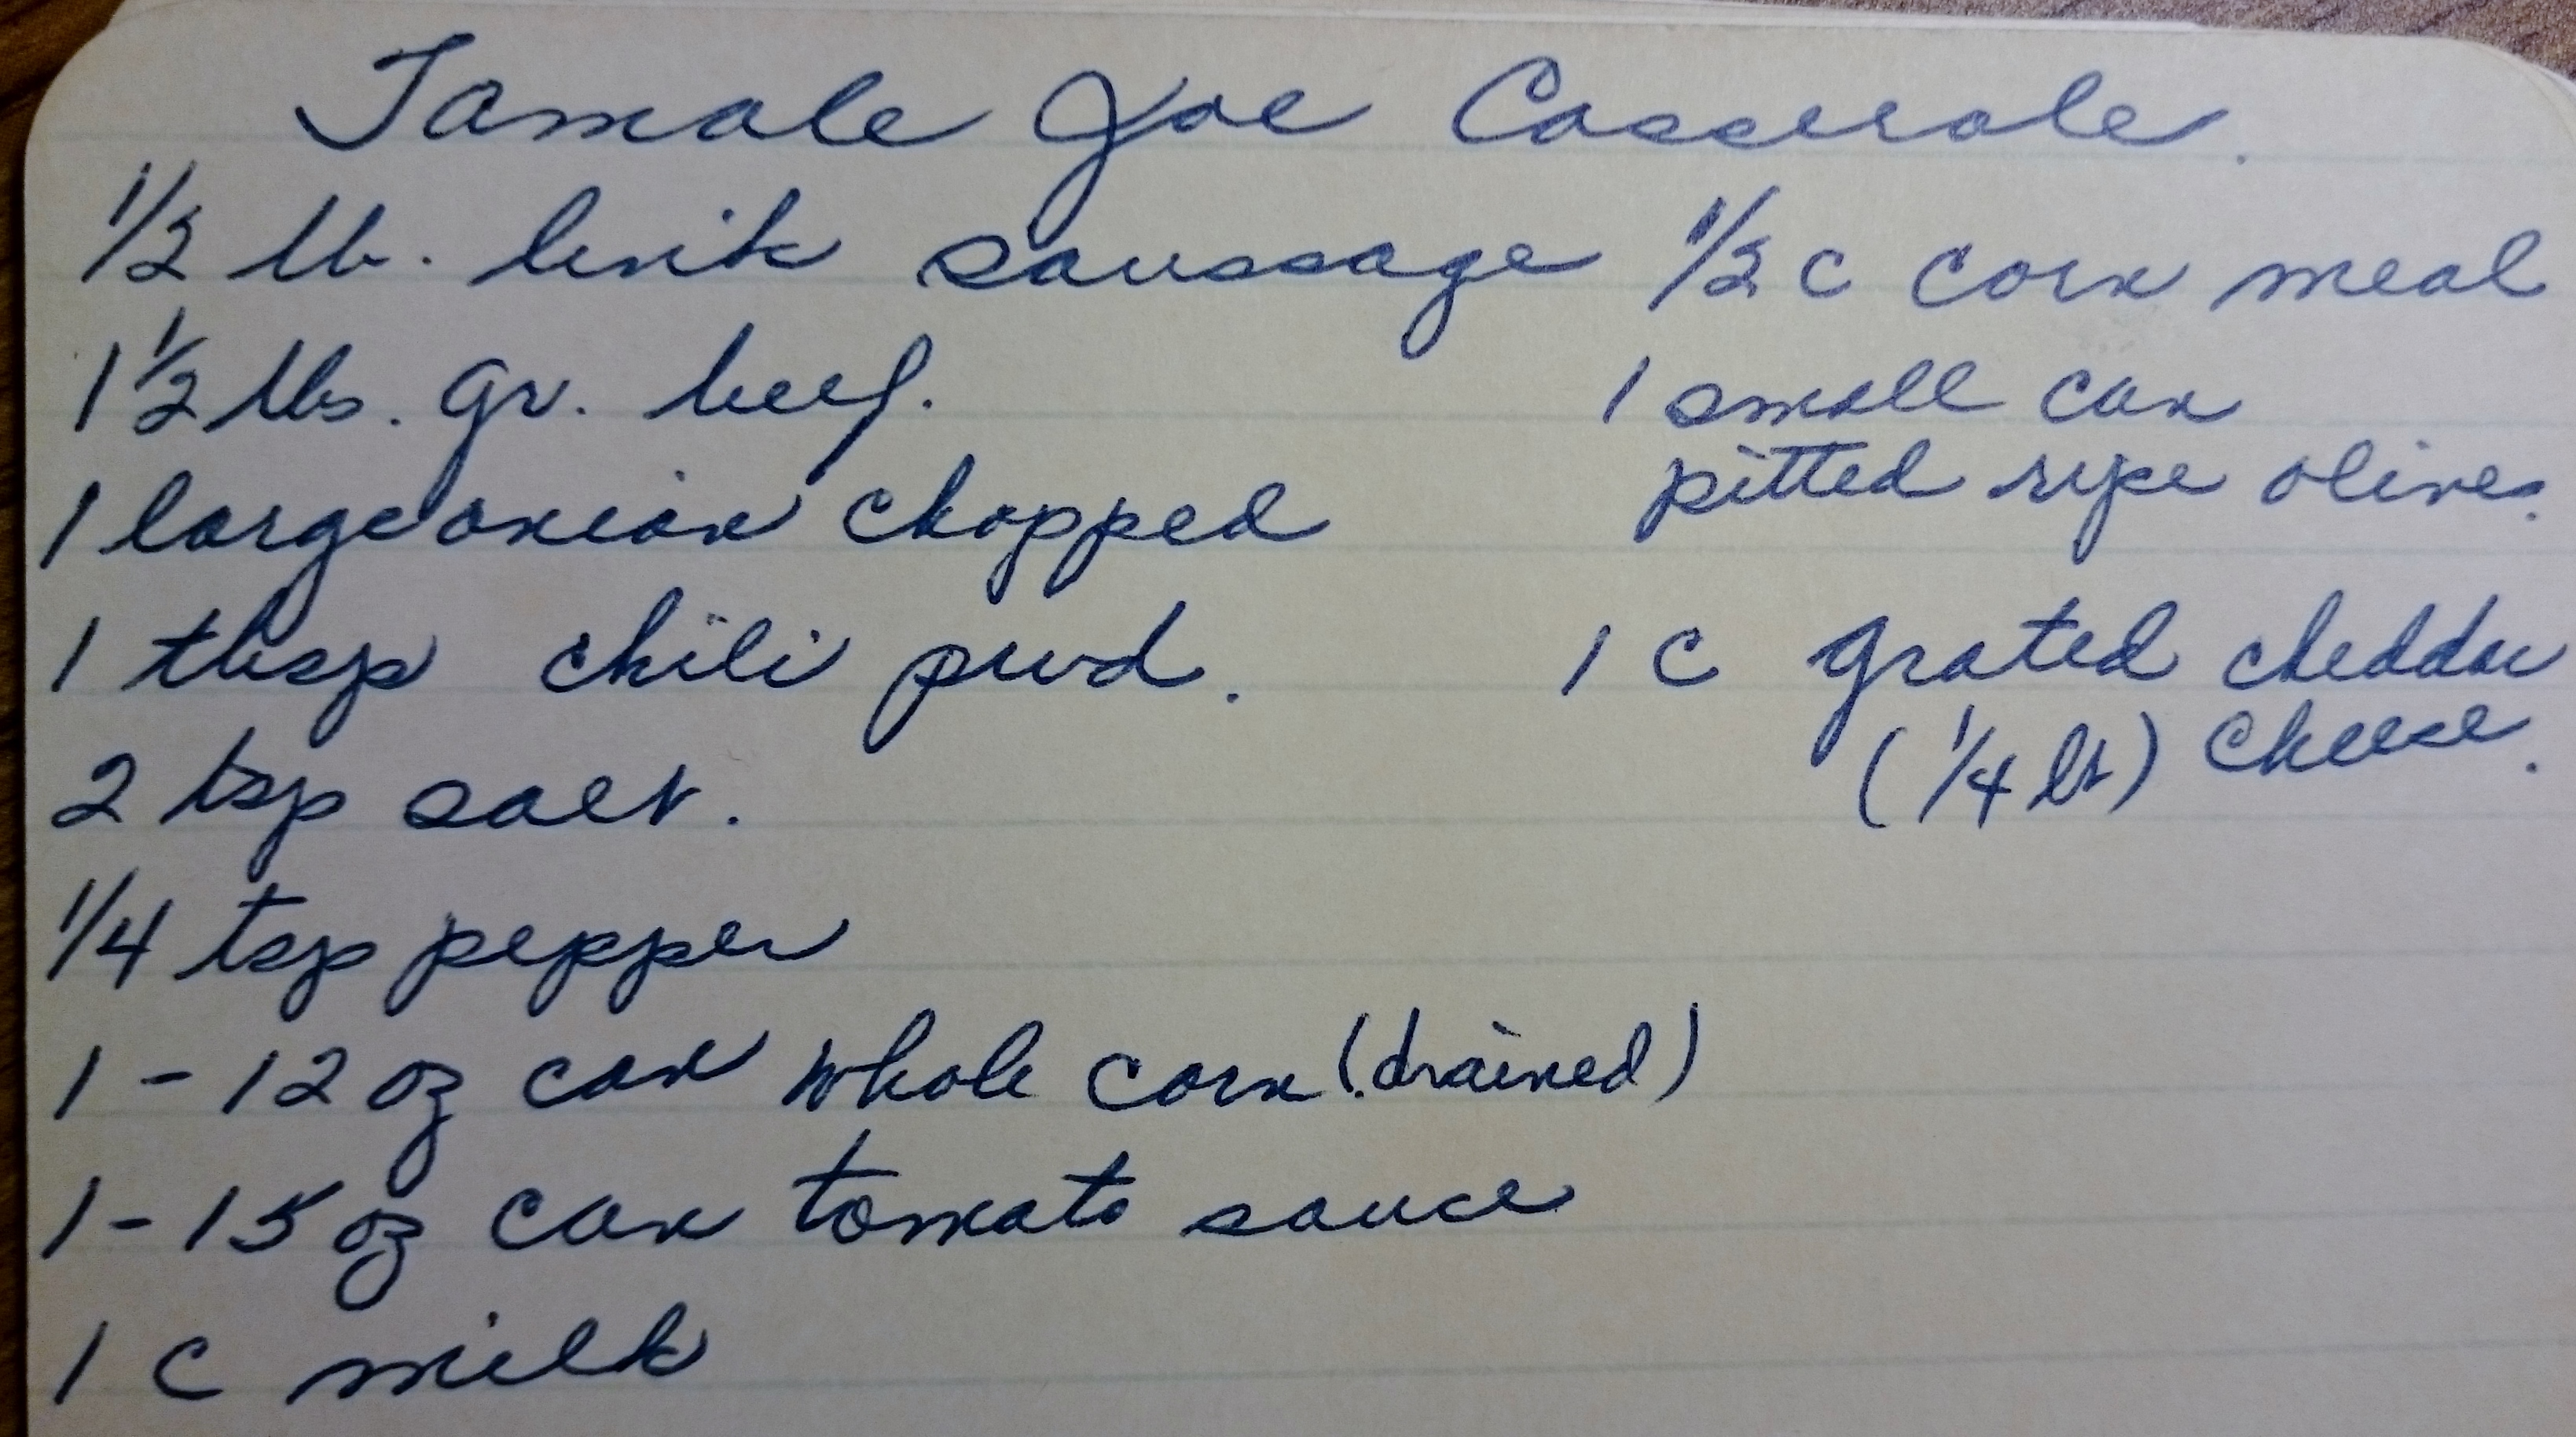 Tamale Joe Casserole.
1/2 lb. link saussage
1 1/2 lbs. gr. beef.
1 large onion chopped
1 tbsp chili pwd.
2 tsp salt.
1/4 tsp pepper
1 - 12 oz can whole corn (drained)
1 - 15 oz can tomato sauce
1 c milk
1/2 c corn meal
1 small can
pitted ripe olives.
1 c grated cheddar
(1/4 lb) cheese.